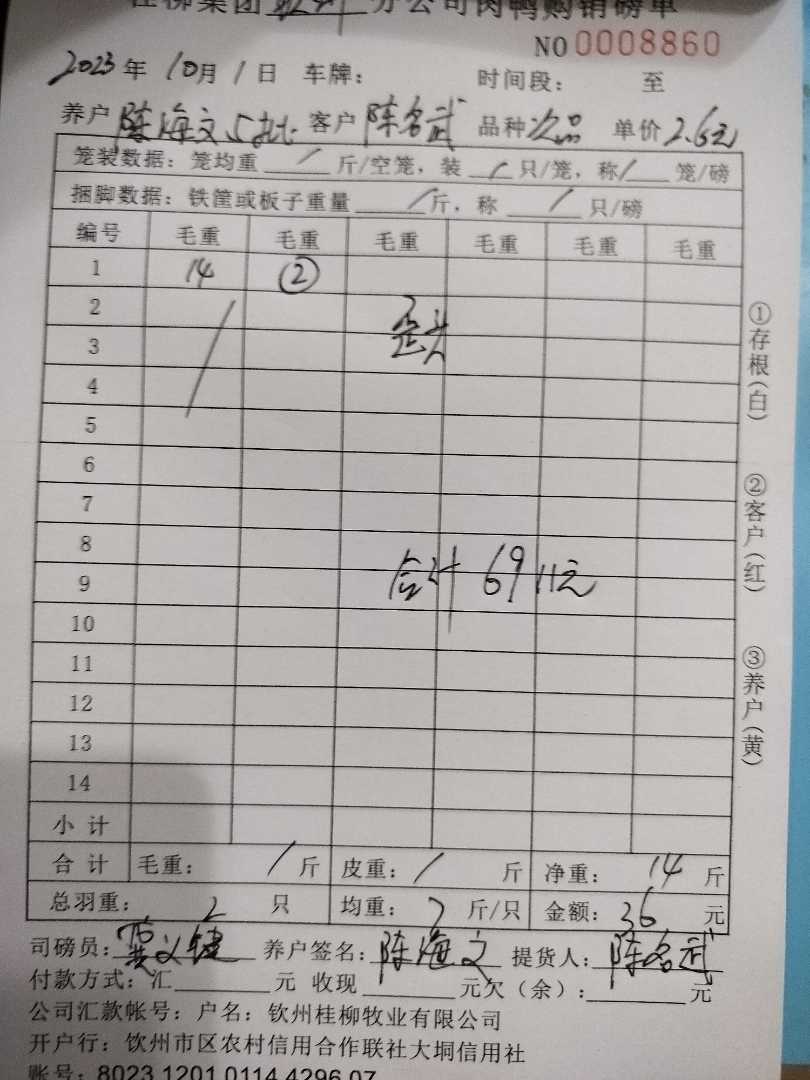 桂柳集团 钦州 分公司肉鸭购销磅单
NO 0008860
2023年 10月 1日 车牌: 时间段: 至
养户 陈海文5批 客户 陈名武 品种 次品 单价 2.6元
笼装数据: 笼均重 / 斤/空笼, 装 / 只/笼, 称 / 笼/磅
捆脚数据: 铁筐或板子重量 / 斤, 称 / 只/磅
编号 毛重 毛重 毛重 毛重 毛重 毛重
1 14 ②
2
3
4
5
6
7
8
合计 6911元
9
10
11
12
13
14
小计
合计 毛重: / 斤 皮重: / 斤 净重: 14 斤
总羽重: 2 只 均重: 7 斤/只 金额: 36 元
司磅员: 养户签名: 陈海文 提货人: 陈名武
付款方式: 汇 元 收现 元欠(余): 元
公司汇款帐号: 户名: 钦州桂柳牧业有限公司
开户行: 钦州市区农村信用合作联社大垌信用社
账号: 8023 1201 0114 4296 07
①存根(白)
②客户(红)
③养户(黄)